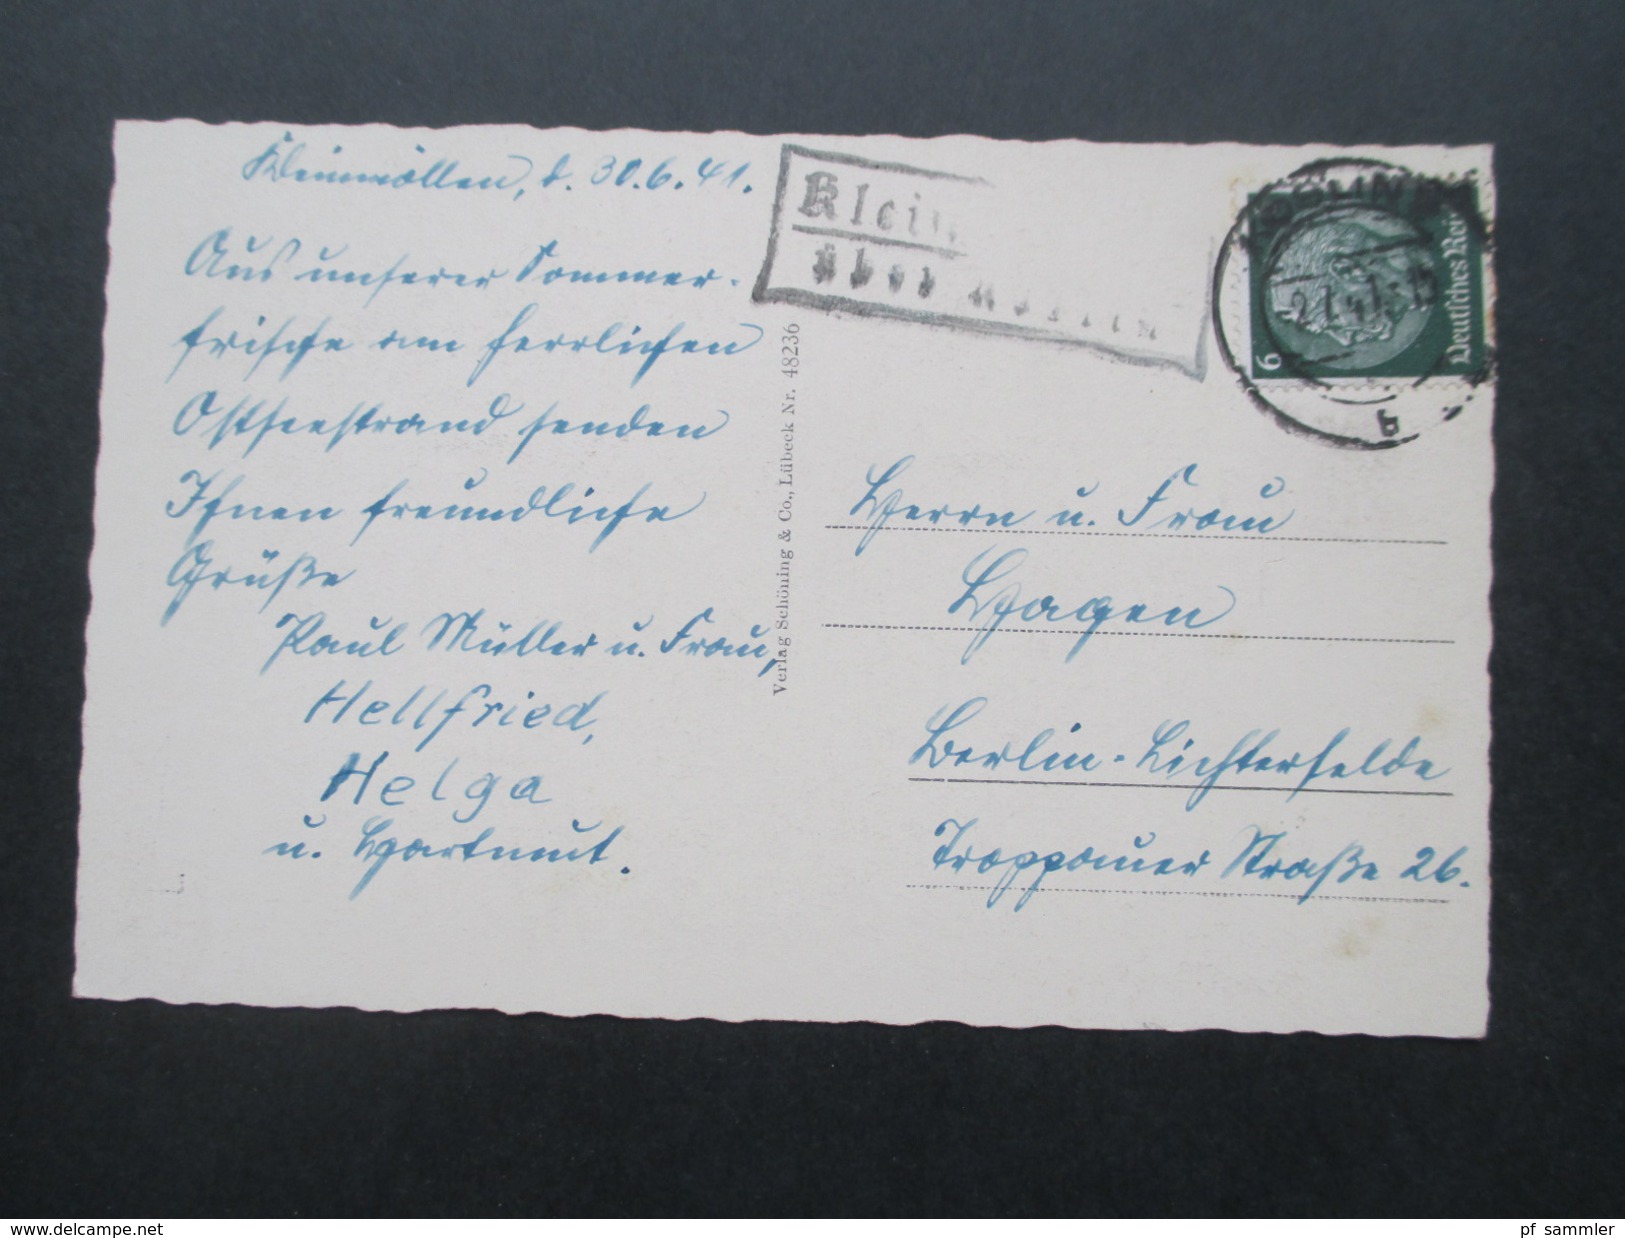 Kleinmöllen, d. 30.6.41.
Aus unserer Sommer-
frische am herrlichen
Ostseestrand senden
Ihnen freundliche
Grüße
Paul Müller u. Frau,
Hellfried,
Helga
u. Hartmut.
Verlag Schöning & Co., Lübeck Nr. 48236
Klein
über
KÖSLIN
2.7.41
b
6
Deutsches Reich
Herrn u. Frau
Hagen
Berlin-Lichterfelde
Troppauer Straße 26.
delcampe.net
pf_sammler